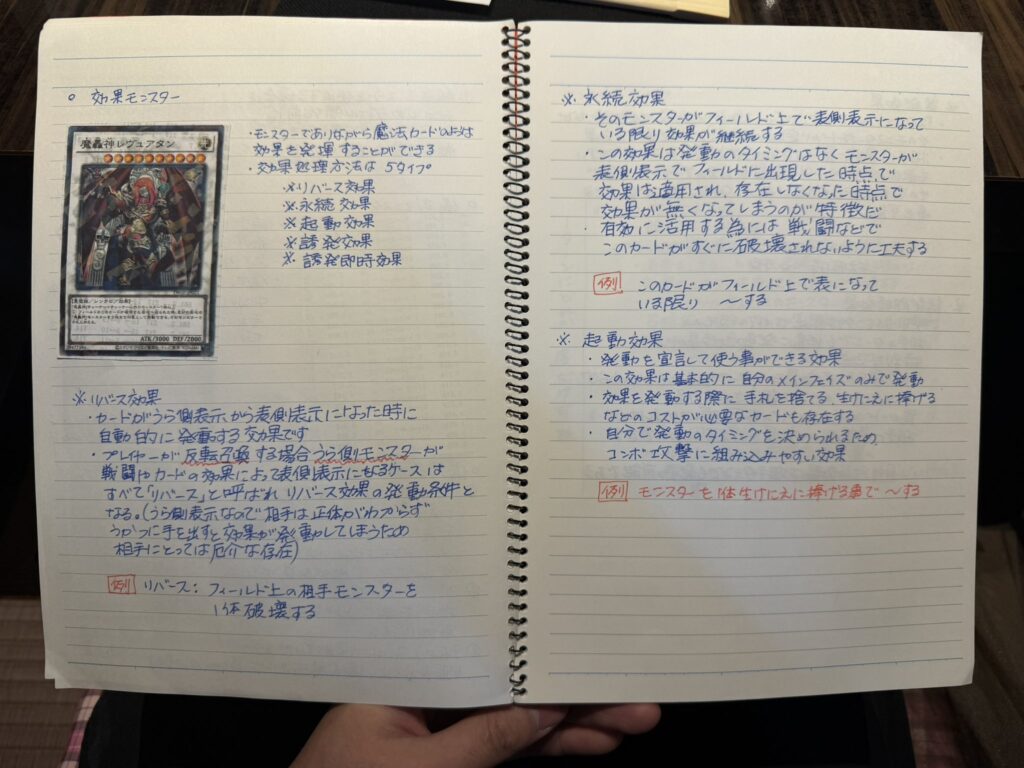 ○ 効果モンスター
魔轟神レヴュアタン
ATK/3000 DEF/2000
・モンスターでありながら魔法カードのような
効果を発揮することができる
・効果処理方法は 5タイプ
※リバース効果
※永続効果
※起動効果
※誘発効果
※誘発即時効果
※リバース効果
・カードがうら側表示から表側表示になった時に
自動的に発動する効果です
・プレイヤーが反転召喚する場合うら側モンスターが
戦闘やカードの効果によって表側表示になるケースは
すべて「リバース」と呼ばれ リバース効果の発動条件と
なる。(うら側表示なので相手は正体がわからず
うかつに手を出すと効果が発動してしまうため
相手にとっては厄介な存在)
例 リバース:フィールド上の相手モンスターを
1体破壊する
※永続効果
・そのモンスターがフィールド上で表側表示になって
いる限り効果が継続する
・この効果は発動のタイミングはなくモンスターが
表側表示でフィールドに出現した時点で
効果は適用され、存在しなくなった時点で
効果が無くなってしまうのが特徴だ
・有効に活用する為には戦闘などで
このカードがすぐに破壊されないように工夫する
例 このカードがフィールド上で表になって
いる限り 〜する
※起動効果
・発動を宣言して使う事ができる効果
・この効果は基本的に自分のメインフェイズのみで発動
・効果を発動する際に手札を捨てる、生けにえに捧げる
などのコストが必要なカードも存在する
・自分で発動のタイミングを決められるため
コンボ攻撃に組み込みやすい効果
例 モンスターを1体生けにえに捧げる事で 〜する